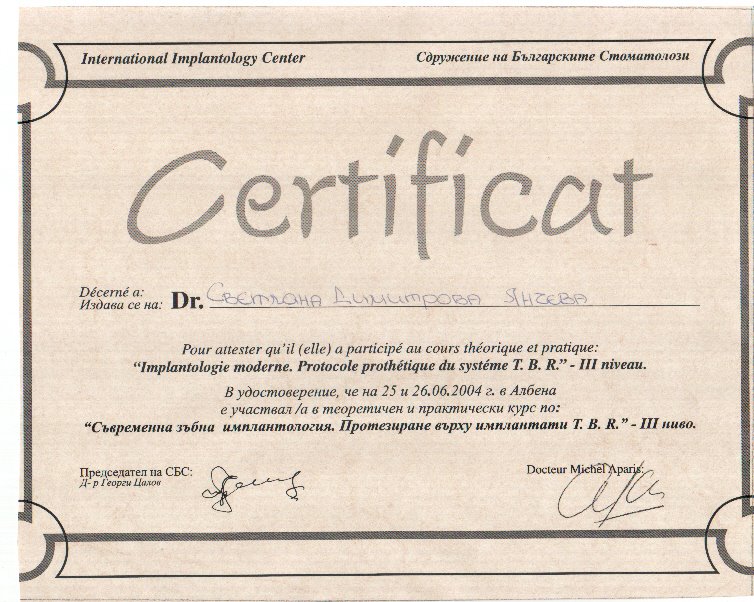 International Implantology Center Сдружение на Българските Стоматолози
Certificat
Décerné a:
Издава се на: Dr. Светлана Димитрова Янчева
Pour attester qu'il (elle) a participé au cours théorique et pratique:
“Implantologie moderne. Protocole prothétique du systéme T. B. R.” - III niveau.
В удостоверение, че на 25 и 26.06.2004 г. в Албена
е участвал /а в теоретичен и практически курс по:
“Съвременна зъбна имплантология. Протезиране върху имплантати T. B. R.” - III ниво.
Председател на СБС: Docteur Michel Aparis:
Д- р Георги Цалов